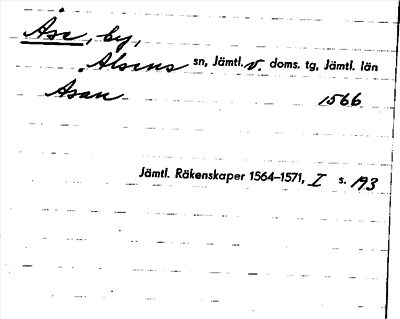 Åse, by,
Alsens sn, Jämtl. v. doms. tg, Jämtl. län
Åsan 1566
Jämtl. Räkenskaper 1564–1571, I s. 193